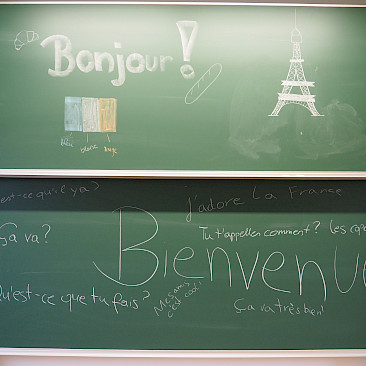 Bonjour!
bleu blanc rouge
est-ce qu'il y a?
j'adore La France
Ça va?
Tu t'appelles comment? Les
Bienvenu
Qu'est-ce que tu fais?
c'est cool!
Ça va très bien!